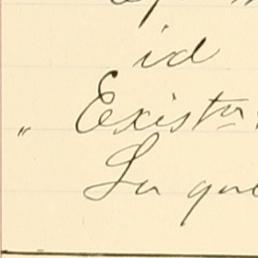 id
" Existen
La que